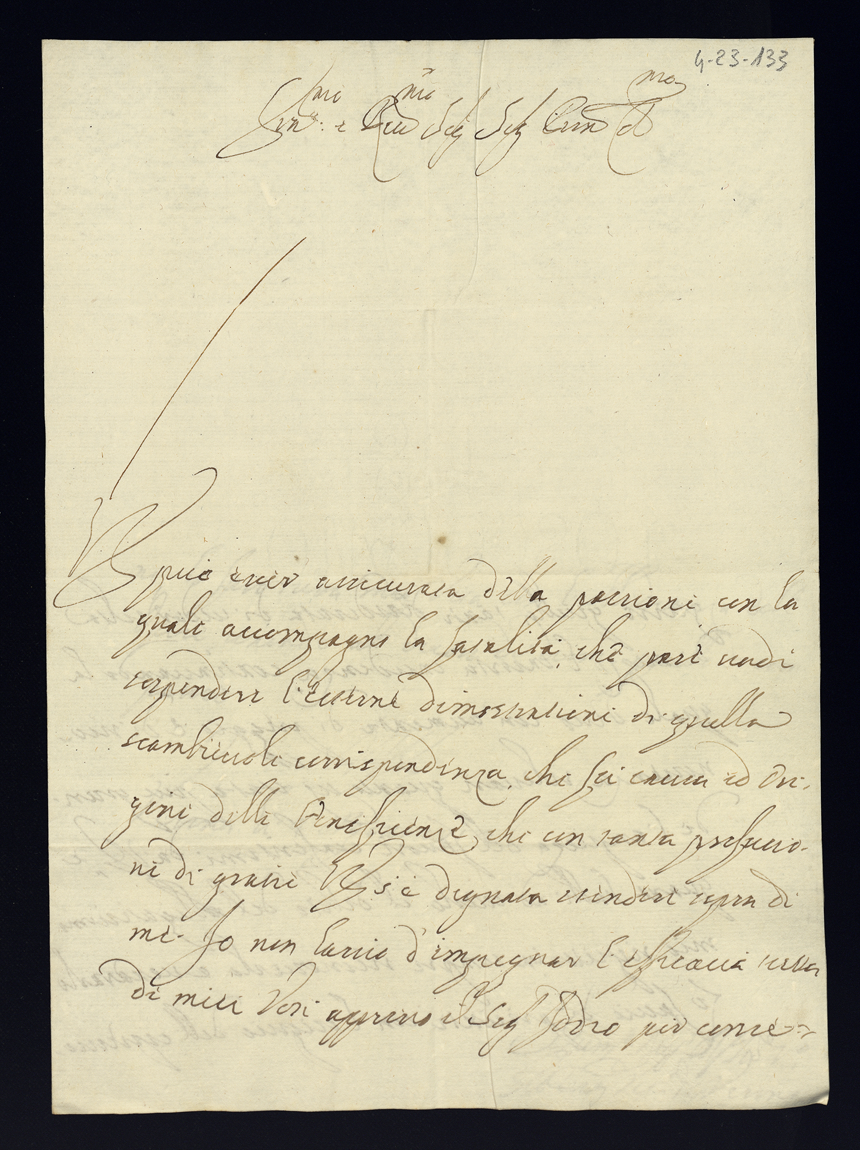 4-23-133
Em.mo e Re.mo Sig Sig P.ron Col.mo
V. E. può esser assicurata della passione con la
quale accompagno la fatalità, che pare vadi
sospendere l'esterne dimostrationi di quella
scambievole corrispondenza, che fù causa ed ori-
gine delle Beneficenze, che con tanta profusio-
ne di gratie V. E. s'è degnata estendere sopra di
me. Io non lascio d'impegnar l'efficacia tutta
di miei Voti appresso il Sig Iddio per conse=